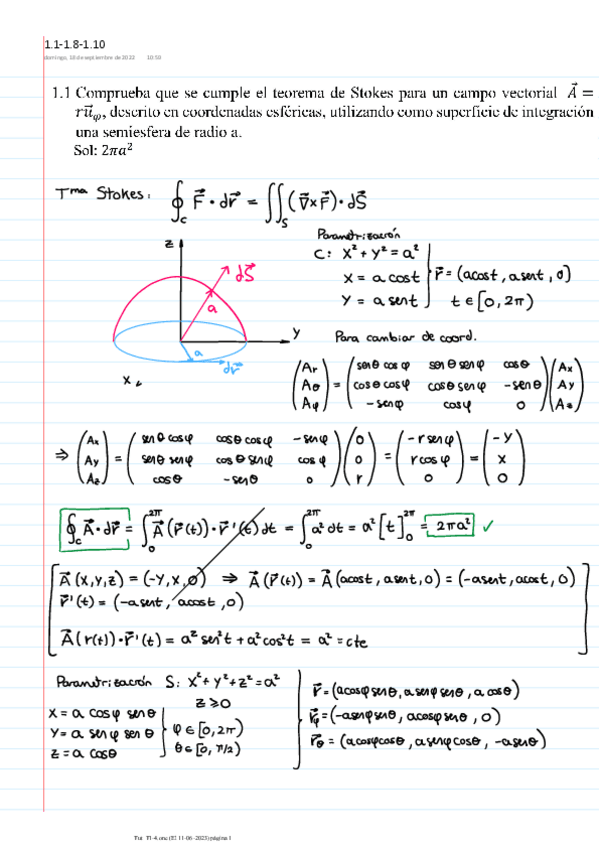 1.1-1.8-1.10
domingo, 18 de septiembre de 2022 10:50
1.1 Comprueba que se cumple el teorema de Stokes para un campo vectorial A⃗ =
ru⃗φ, descrito en coordenadas esféricas, utilizando como superficie de integración
una semiesfera de radio a.
Sol: 2πa²
Tma Stokes: ∮c F⃗ · dr⃗ = ∬s (∇⃗×F⃗) · dS⃗
Parametrización
C: x² + y² = a²
x = a cost
y = a sent
r⃗ = (acost, asent, 0)
t ∈ [0, 2π)
z
dS⃗
a
y
a
dr⃗
x
Para cambiar de coord.
(Ar Aθ Aφ) = (senθ cosφ senθ senφ cosθ
cosθ cosφ cosθ senφ -senθ
-senφ cosφ 0) (Ax Ay Az)
⇒ (Ax Ay Az) = (senθ cosφ cosθ cosφ -senφ
senθ senφ cosθ senφ cosφ
cosθ -senθ 0) (0 0 r) = (-r senφ r cosφ 0) = (-y x 0)
∮c A⃗ · dr⃗ = ∫₀^2π A⃗(r⃗(t)) · r⃗'(t) dt = ∫₀^2π a² dt = a² [t]₀^2π = 2πa² ✓
A⃗(x,y,z) = (-y, x, 0) ⇒ A⃗(r⃗(t)) = A⃗(acost, asent, 0) = (-asent, acost, 0)
r⃗'(t) = (-asent, acost, 0)
A⃗(r(t)) · r⃗'(t) = a² sen²t + a² cos²t = a² = cte
Parametrización S: x² + y² + z² = a²
z ≥ 0
x = a cosφ senθ
y = a senφ senθ
z = a cosθ
φ ∈ [0, 2π)
θ ∈ [0, π/2)
r⃗ = (acosφ senθ, a senφ senθ, a cosθ)
r⃗φ = (-asenφ senθ, acosφ senθ, 0)
r⃗θ = (acosφ cosθ, a senφ cosθ, -asenθ)